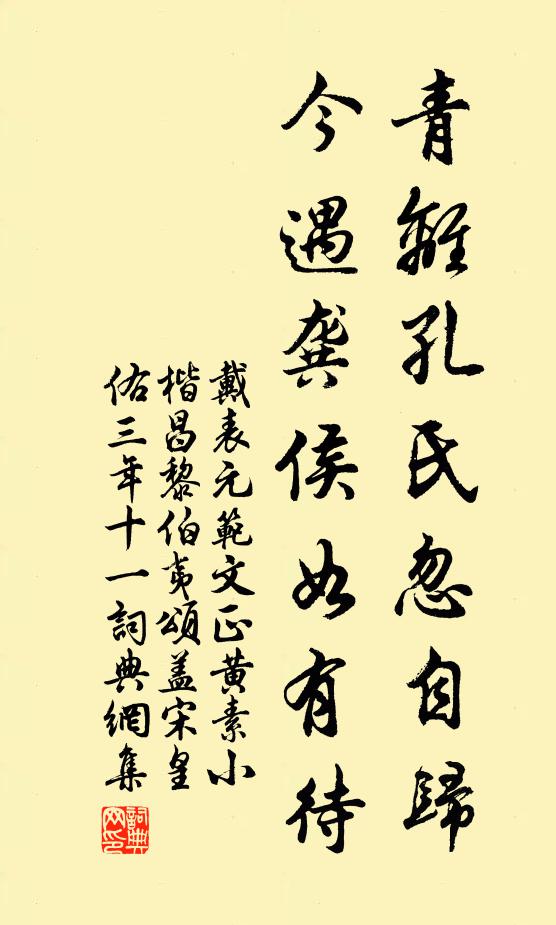 青氈孔氏忽自歸
今遇龔侯如有待
戴表元範文正黃素小
楷昌黎伯夷頌蓋宋皇
佑三年十一詞典網集
詞典網印